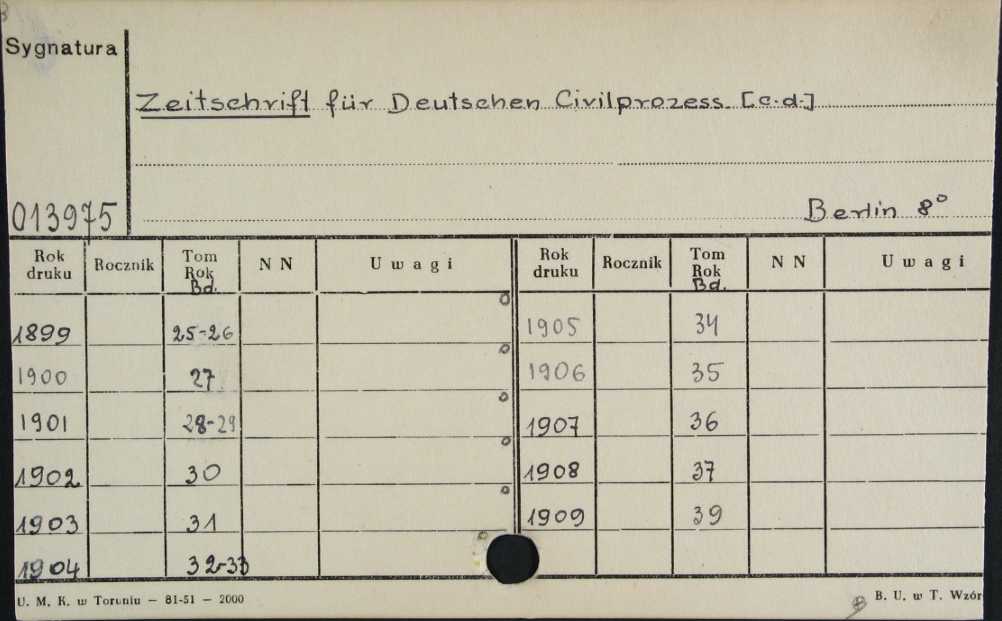 Sygnatura
Zeitschrift für Deutschen Civilprozess [c.d.]
013975
Berlin 8°
Rok druku Rocznik Tom Rok Bd. N N Uwagi Rok druku Rocznik Tom Rok Bd. N N Uwagi
1899 25-26 1905 34
1900 27 1906 35
1901 28-29 1907 36
1902 30 1908 37
1903 31 1909 39
1904 32-33
U. M. K. w Toruniu — 81-51 — 2000
B. U. w T. Wzór